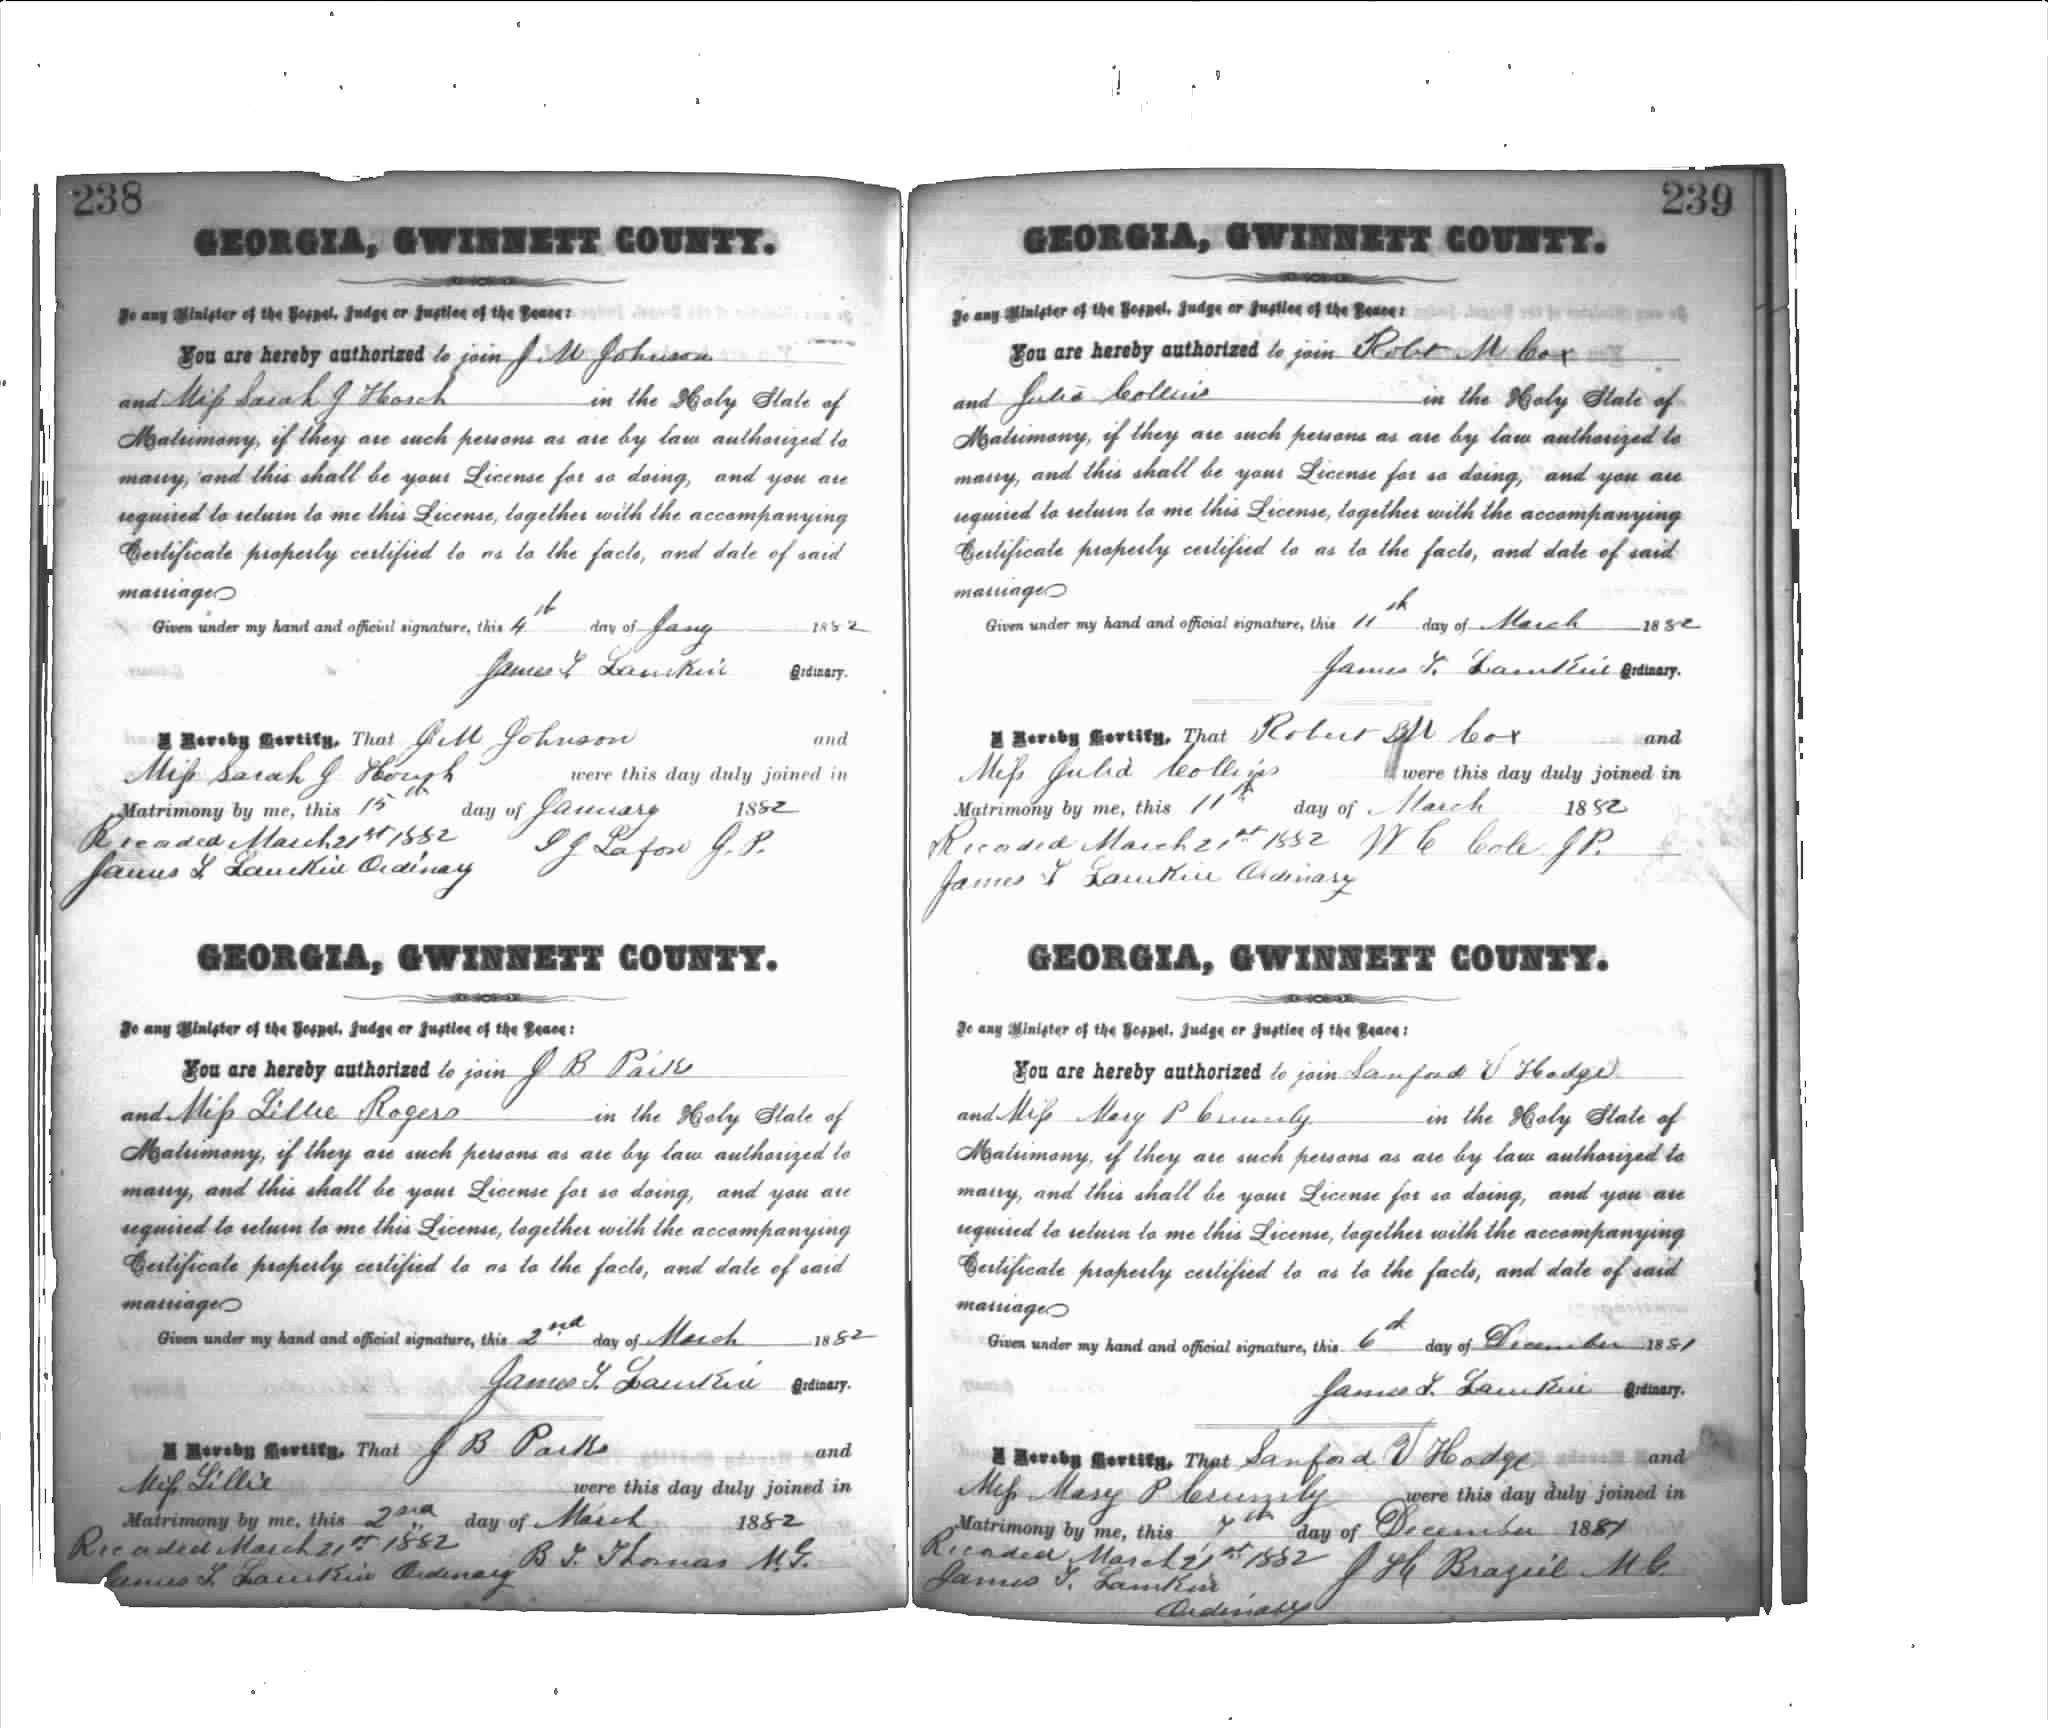 238
GEORGIA, GWINNETT COUNTY.
To any Minister of the Gospel, Judge or Justice of the Peace:
You are hereby authorized to join J M Johnson
and Miss Sarah J Hosch in the Holy State of
Matrimony, if they are such persons as are by law authorized to
marry, and this shall be your License for so doing, and you are
required to return to me this License, together with the accompanying
Certificate properly certified to as to the facts, and date of said
marriage
Given under my hand and official signature, this 4th day of Jany 1882
James T. Lamkin Ordinary.
I Hereby Certify, That J M Johnson and
Miss Sarah J Hough were this day duly joined in
Matrimony by me, this 15th day of January 1882
Recorded March 21st 1882
James T Lamkin Ordinary
J Lafon J. P.
GEORGIA, GWINNETT COUNTY.
To any Minister of the Gospel, Judge or Justice of the Peace:
You are hereby authorized to join J B Parks
and Miss Lillie Rogers in the Holy State of
Matrimony, if they are such persons as are by law authorized to
marry, and this shall be your License for so doing, and you are
required to return to me this License, together with the accompanying
Certificate properly certified to as to the facts, and date of said
marriage
Given under my hand and official signature, this 2nd day of March 1882
James T. Lamkin Ordinary.
I Hereby Certify, That J B Parks and
Miss Lillie were this day duly joined in
Matrimony by me, this 2nd day of March 1882
Recorded March 21st 1882
James T Lamkin Ordinary
B. T. Thomas M. G.
239
GEORGIA, GWINNETT COUNTY.
To any Minister of the Gospel, Judge or Justice of the Peace:
You are hereby authorized to join Robt M Cox
and Julia Collins in the Holy State of
Matrimony, if they are such persons as are by law authorized to
marry, and this shall be your License for so doing, and you are
required to return to me this License, together with the accompanying
Certificate properly certified to as to the facts, and date of said
marriage
Given under my hand and official signature, this 11th day of March 1882
James T. Lamkin Ordinary.
I Hereby Certify, That Robert M Cox and
Miss Julia Collins were this day duly joined in
Matrimony by me, this 11th day of March 1882
Recorded March 21st 1882
James T Lamkin Ordinary
W C Cole J P.
GEORGIA, GWINNETT COUNTY.
To any Minister of the Gospel, Judge or Justice of the Peace:
You are hereby authorized to join Sanford V Hodge
and Miss Mary P Crumly in the Holy State of
Matrimony, if they are such persons as are by law authorized to
marry, and this shall be your License for so doing, and you are
required to return to me this License, together with the accompanying
Certificate properly certified to as to the facts, and date of said
marriage
Given under my hand and official signature, this 6th day of December 1881
James T. Lamkin Ordinary.
I Hereby Certify, That Sanford V Hodge and
Miss Mary P Crumly were this day duly joined in
Matrimony by me, this 7th day of December 1881
Recorded March 21st 1882
James T. Lamkin
Ordinary
J H Braziel M G